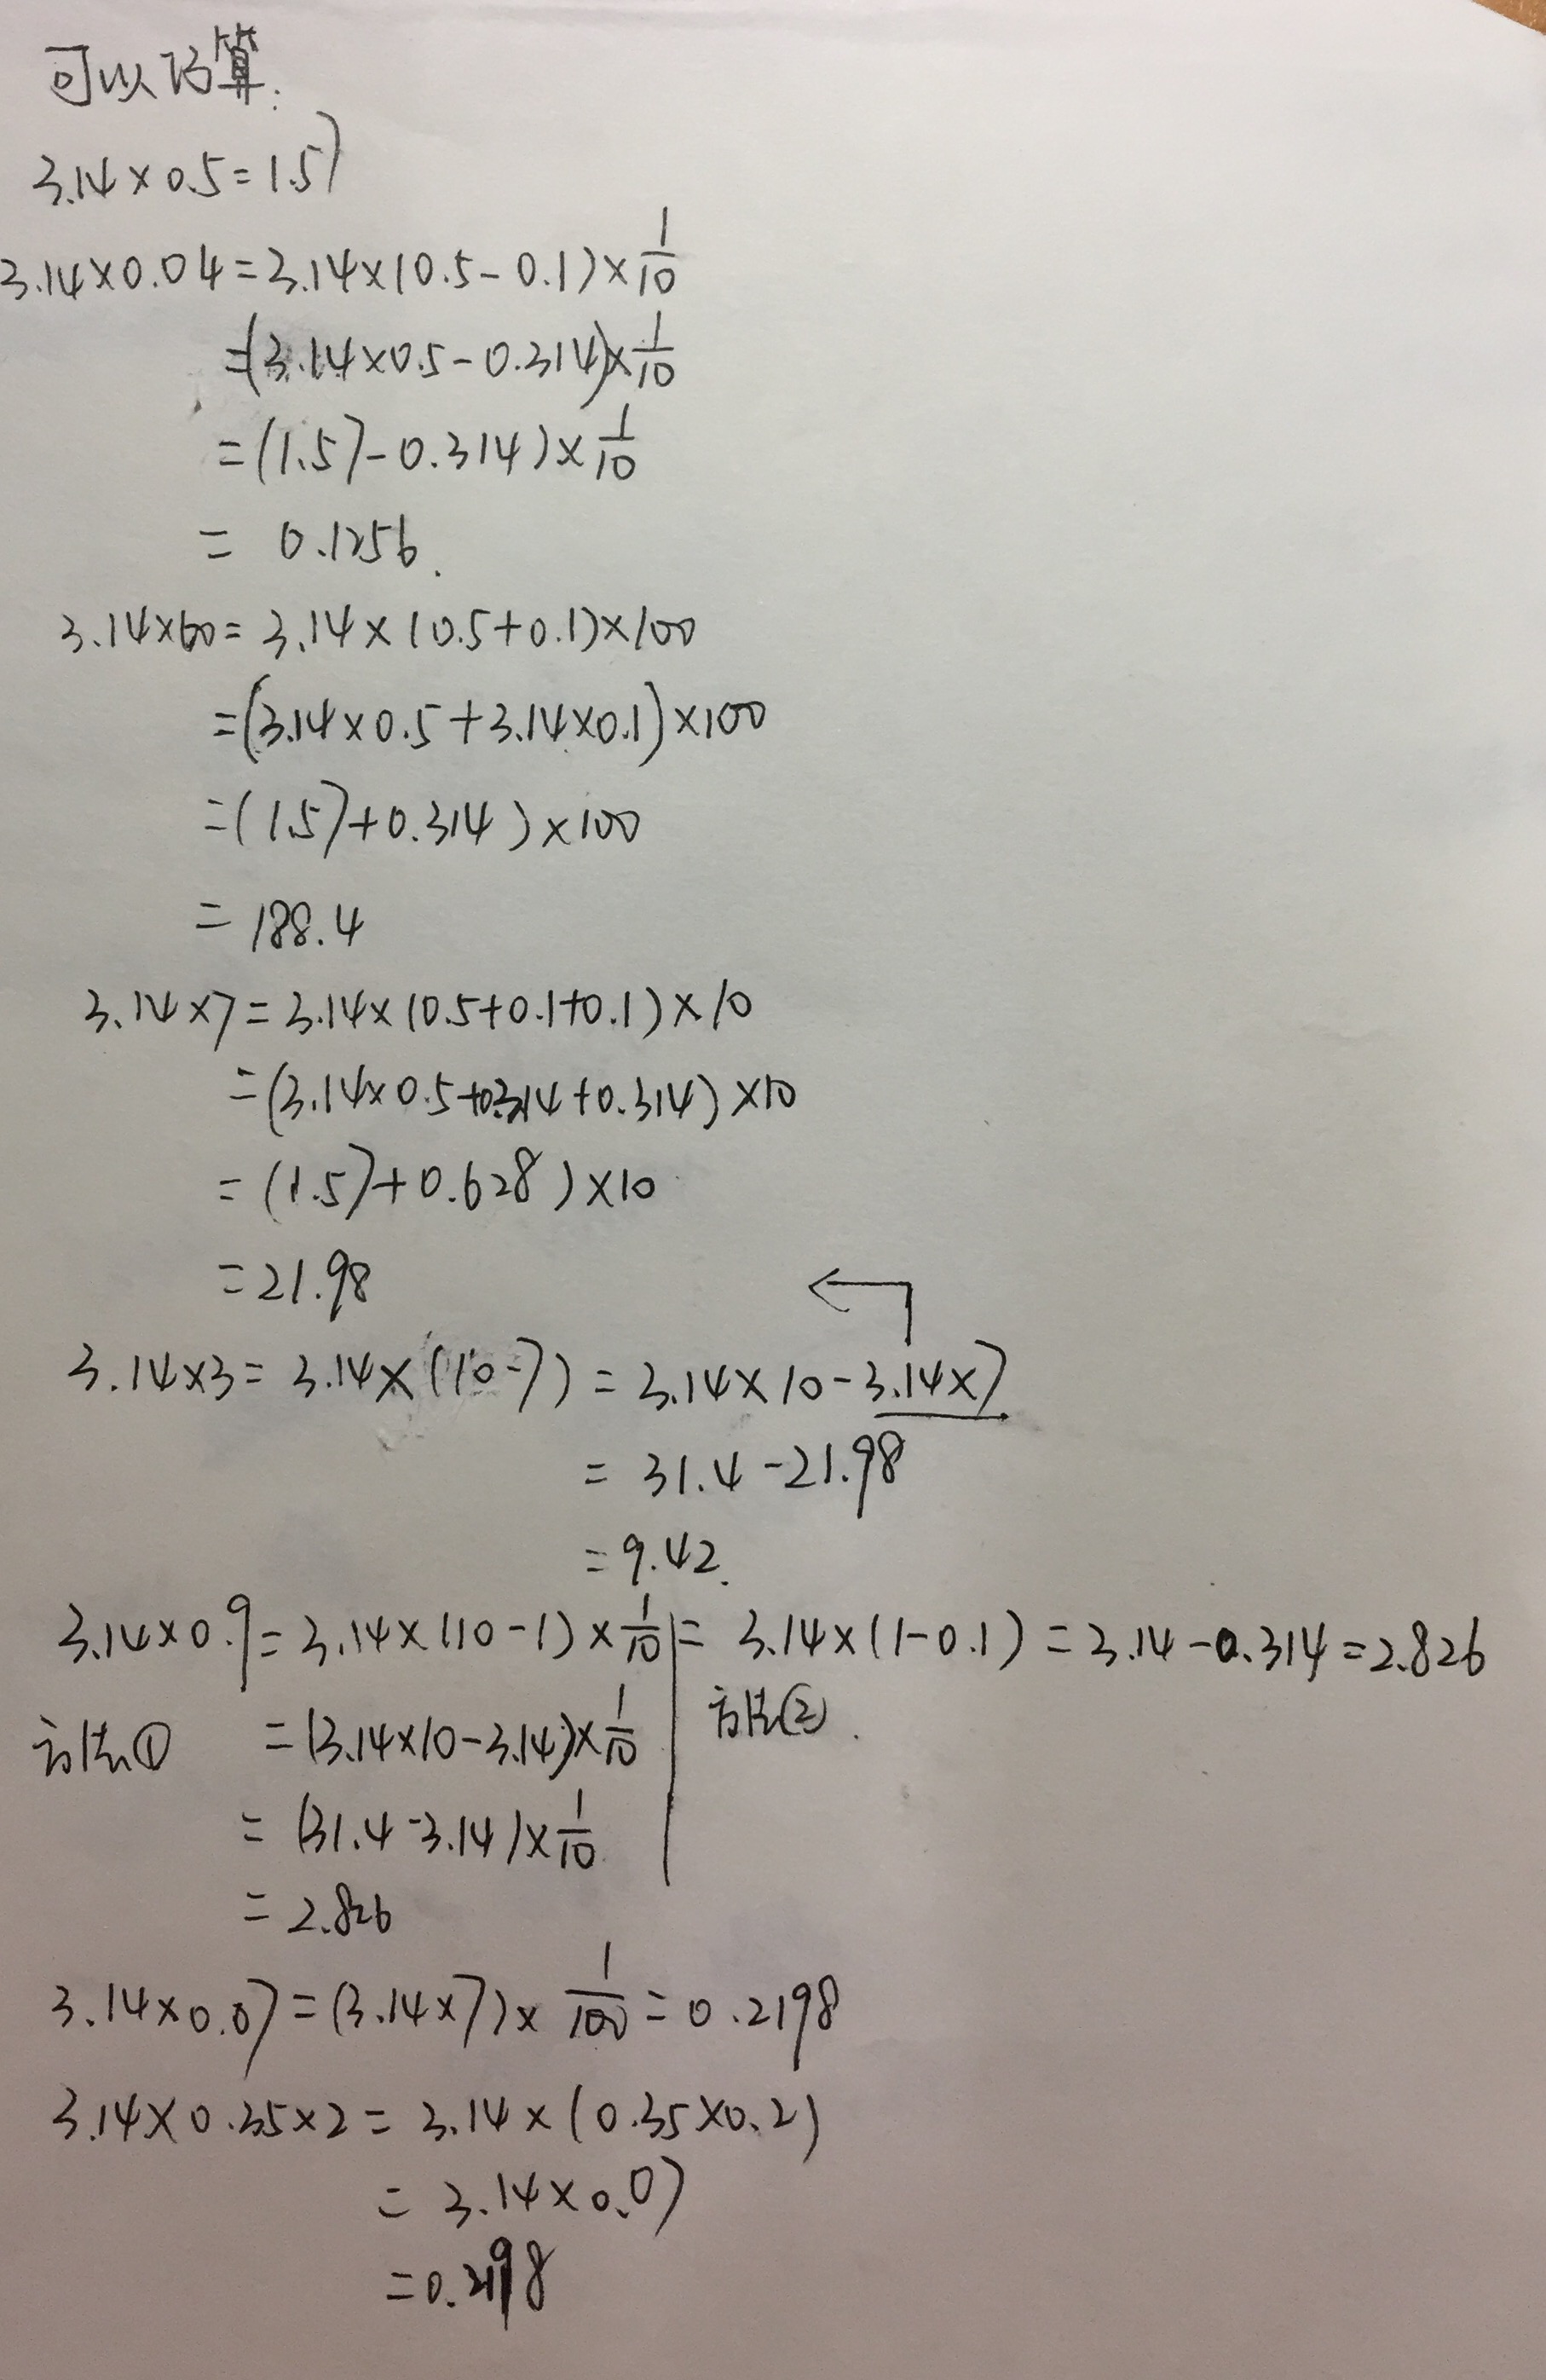 可以巧算:
3.14×0.5=1.57
3.14×0.04=3.14×(0.5-0.1)×1/10
=(3.14×0.5-0.314)×1/10
=(1.57-0.314)×1/10
=0.1256.
3.14×60=3.14×(0.5+0.1)×100
=(3.14×0.5+3.14×0.1)×100
=(1.57+0.314)×100
=188.4
3.14×7=3.14×(0.5+0.1+0.1)×10
=(3.14×0.5+0.314+0.314)×10
=(1.57+0.628)×10
=21.98
3.14×3=3.14×(10-7)=3.14×10-3.14×7
=31.4-21.98
=9.42.
3.14×0.9=3.14×(10-1)×1/10=3.14×(1-0.1)=3.14-0.314=2.826
方法① =(3.14×10-3.14)×1/10 方法②.
=(31.4-3.14)×1/10
=2.826
3.14×0.07=(3.14×7)×1/100=0.2198
3.14×0.35×2=3.14×(0.35×0.2)
=3.14×0.07
=0.2198